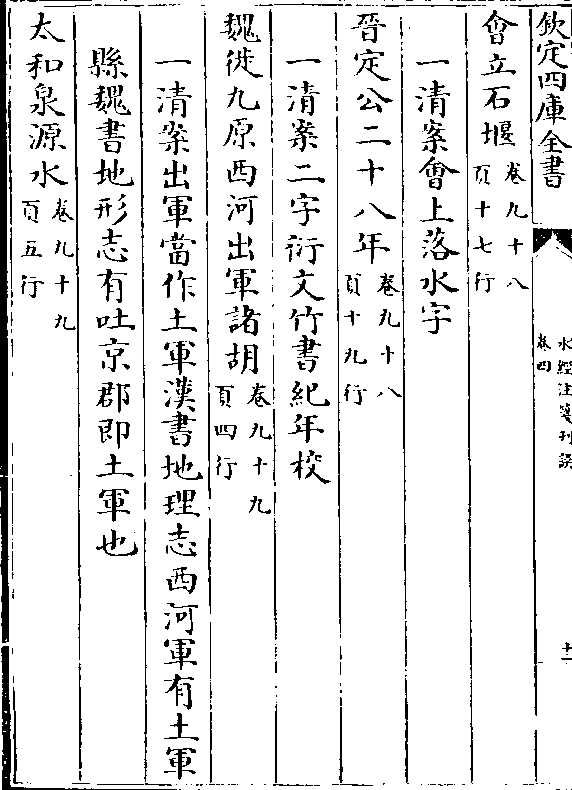 欽定四庫全書
水經注箋刊誤
卷四
十一
會立石堰卷九十八頁十七行
一清案會上落水字
晉定公二十八年卷九十八頁十九行
一清案二字衍文竹書紀年校
魏徙九原西河出軍諸胡卷九十九頁四行
一清案出軍當作土軍漢書地理志西河軍有土軍
縣魏書地形志有吐京郡即土軍也
太和泉源水卷九十九頁五行